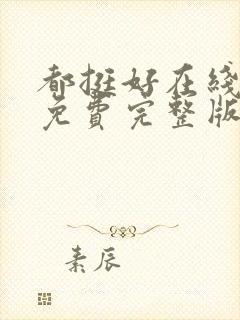 都挺好在线
免费完整版
素辰